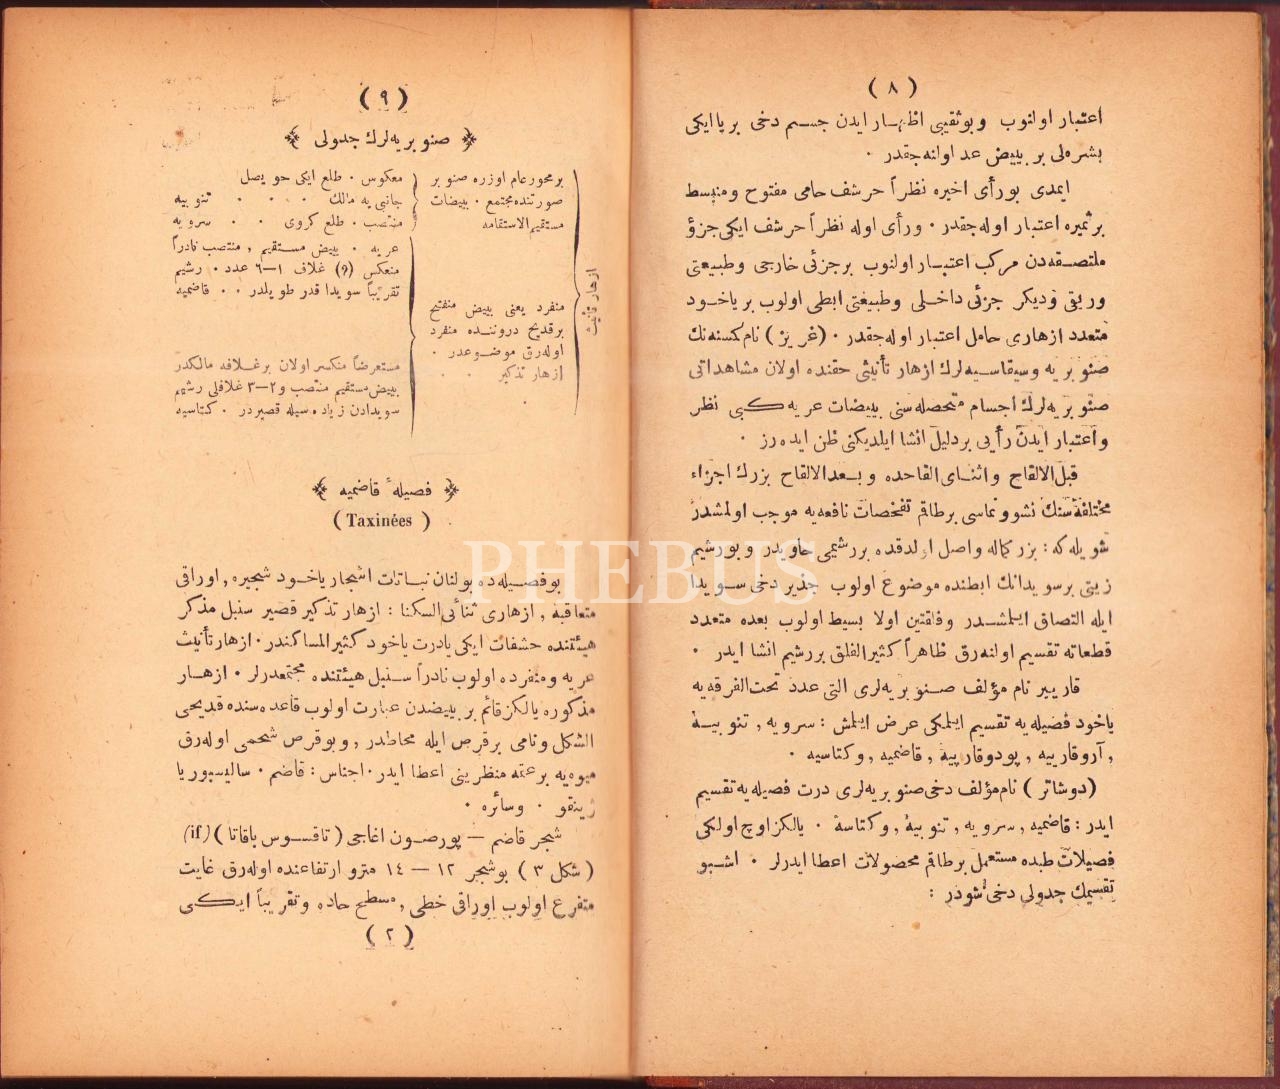 ( ٨ )
اعتبار اولنوب وبوثقیبی اظهار ایدن جسم دخی بر یا ایکی
بشره‌لی بر بییض عد اولنه‌جقدر ٠
ایمدی بورأی اخیره نظراً حرشف حامی مفتوح ومنبسط
بر ثمیره اعتبار اوله‌جقدر ٠ ورأی اوله نظراً حرشف ایکی جزؤ
ملتصقه‌دن مرکب اعتبار اولنوب بر جزئی خارجی وطبیعتی
وریقی ودیکر جزئی داخلی وطبیعتی ابطی اولوب بر یاخود
متعدد ازهاری حامل اعتبار اوله‌جقدر ٠ ( غریز ) نام کمسنه‌نك
صنوبریه وسیقاسیه‌لرك ازهار تأنیثی حقنده اولان مشاهداتی
صنوبریه‌لرك اجسام متحصله‌سنی بییضات عریه کبی نظر
واعتبار ایدن رأیی بر دلیل انشا ایلدیکنی ظن ایده‌رز ٠
قبل الالقاح واثنای القاحده وبعد الالقاح بزرك اجزاء
مختلفه‌سنك نشوونماسی برطاقم تفحصات نافعه‌یه موجب اولمشدر
شویله که : بزر کماله واصل اولدقده بر رشیمی حاویدر وبورشیم
زیتی برسویدانك ابطنده موضوع اولوب جذیر دخی سویدا
ایله التصاق ایلمشدر وفلقتین اولا بسیط اولوب بعده متعدد
قطعاته تقسیم اولنه‌رق ظاهراً کثیرالفلق بر رشیم انشا ایدر ٠
قارییر نام مؤلف صنوبریه‌لری التی عدد تحت‌الفرقه‌یه
یاخود فضیله‌یه تقسیم ایلمکی عرض ایلمش : سرویه , تنوبیه
, آروقارییه , پودوقارپیه , قاضمیه , وکتاسیه ٠
( دوشاتر ) نام مؤلف دخی صنوبریه‌لری درت فصیله‌یه تقسیم
ایدر : قاضمیه , سرویه , تنوبیه , وکتاسه ٠ یالکز اوچ اولکی
فصیلات طبده مستعمل برطاقم محصولات اعطا ایدرلر ٠ اشبو
تقسیمك جدولی دخی شودر :
( ٩ )
صنوبریه‌لرك جدولی
ازهار تأنیث
بر محور عام اوزره صنوبر
صورتنده مجتمع ٠ بییضات
مستقیم الاستقامه
معکوس ٠ طلع ایکی حویصل
جانبی‌یه مالك ٠ ٠ ٠ تنوبیه
منتصب ٠ طلع کروی ٠ ٠ سرویه
منفرد یعنی بییض منفتیح
بر قدیح دروننده منفرد
اوله‌رق موضوعدر ٠
ازهار تذکیر ٠ ٠
عریه ٠ بییض مستقیم , منتصب نادراً
منعکس (؟) غلاف ١—٦ عدد ٠ رشیم
تقریباً سویدا قدر طویلدر ٠ ٠ قاضمیه
مستعرضاً منکسر اولان بر غلافه مالکدر
بییض مستقیم منتصب و ٢—٣ غلافلی رشیم
سویدادن زیاده‌سیله قصیردر ٠ کتاسیه
فصیلهٔ قاضمیه
( Taxinées )
بوفصیله‌ده بولنان نباتات اشجار یاخود شجیره , اوراقی
متعاقبه , ازهاری ثنائی السکنا : ازهار تذکیر قصیر سنبل مذکر
هیئتنده حشفات ایکی یا درت یاخود کثیرالمساکندر ٠ ازهار تأنیث
عریه ومنفرده اولوب نادراً سنبل هیئتنده مجتمعدرلر ٠ ازهار
مذکوره یالکز قائم بر بییضدن عبارت اولوب قاعده‌سنده قدیحی
الشکل ونامی بر قرص ایله محاطدر , وبو قرص شحمی اوله‌رق
میوه‌یه بر عنبه منظرینی اعطا ایدر ٠ اجناس : قاضم ٠ سالیسبوریا
ژینقو ٠ وسائره ٠
شجر قاضم — پورصون اغاجی ( تاقسوس باقاتا ) (if)
( شکل ٣ ) بوشجر ١٢ — ١٤ مترو ارتفاعنده اوله‌رق غایت
متفرع اولوب اوراقی خطی , مسطح حاده وتقریباً ایکی
( ٢ )
PHEBUS